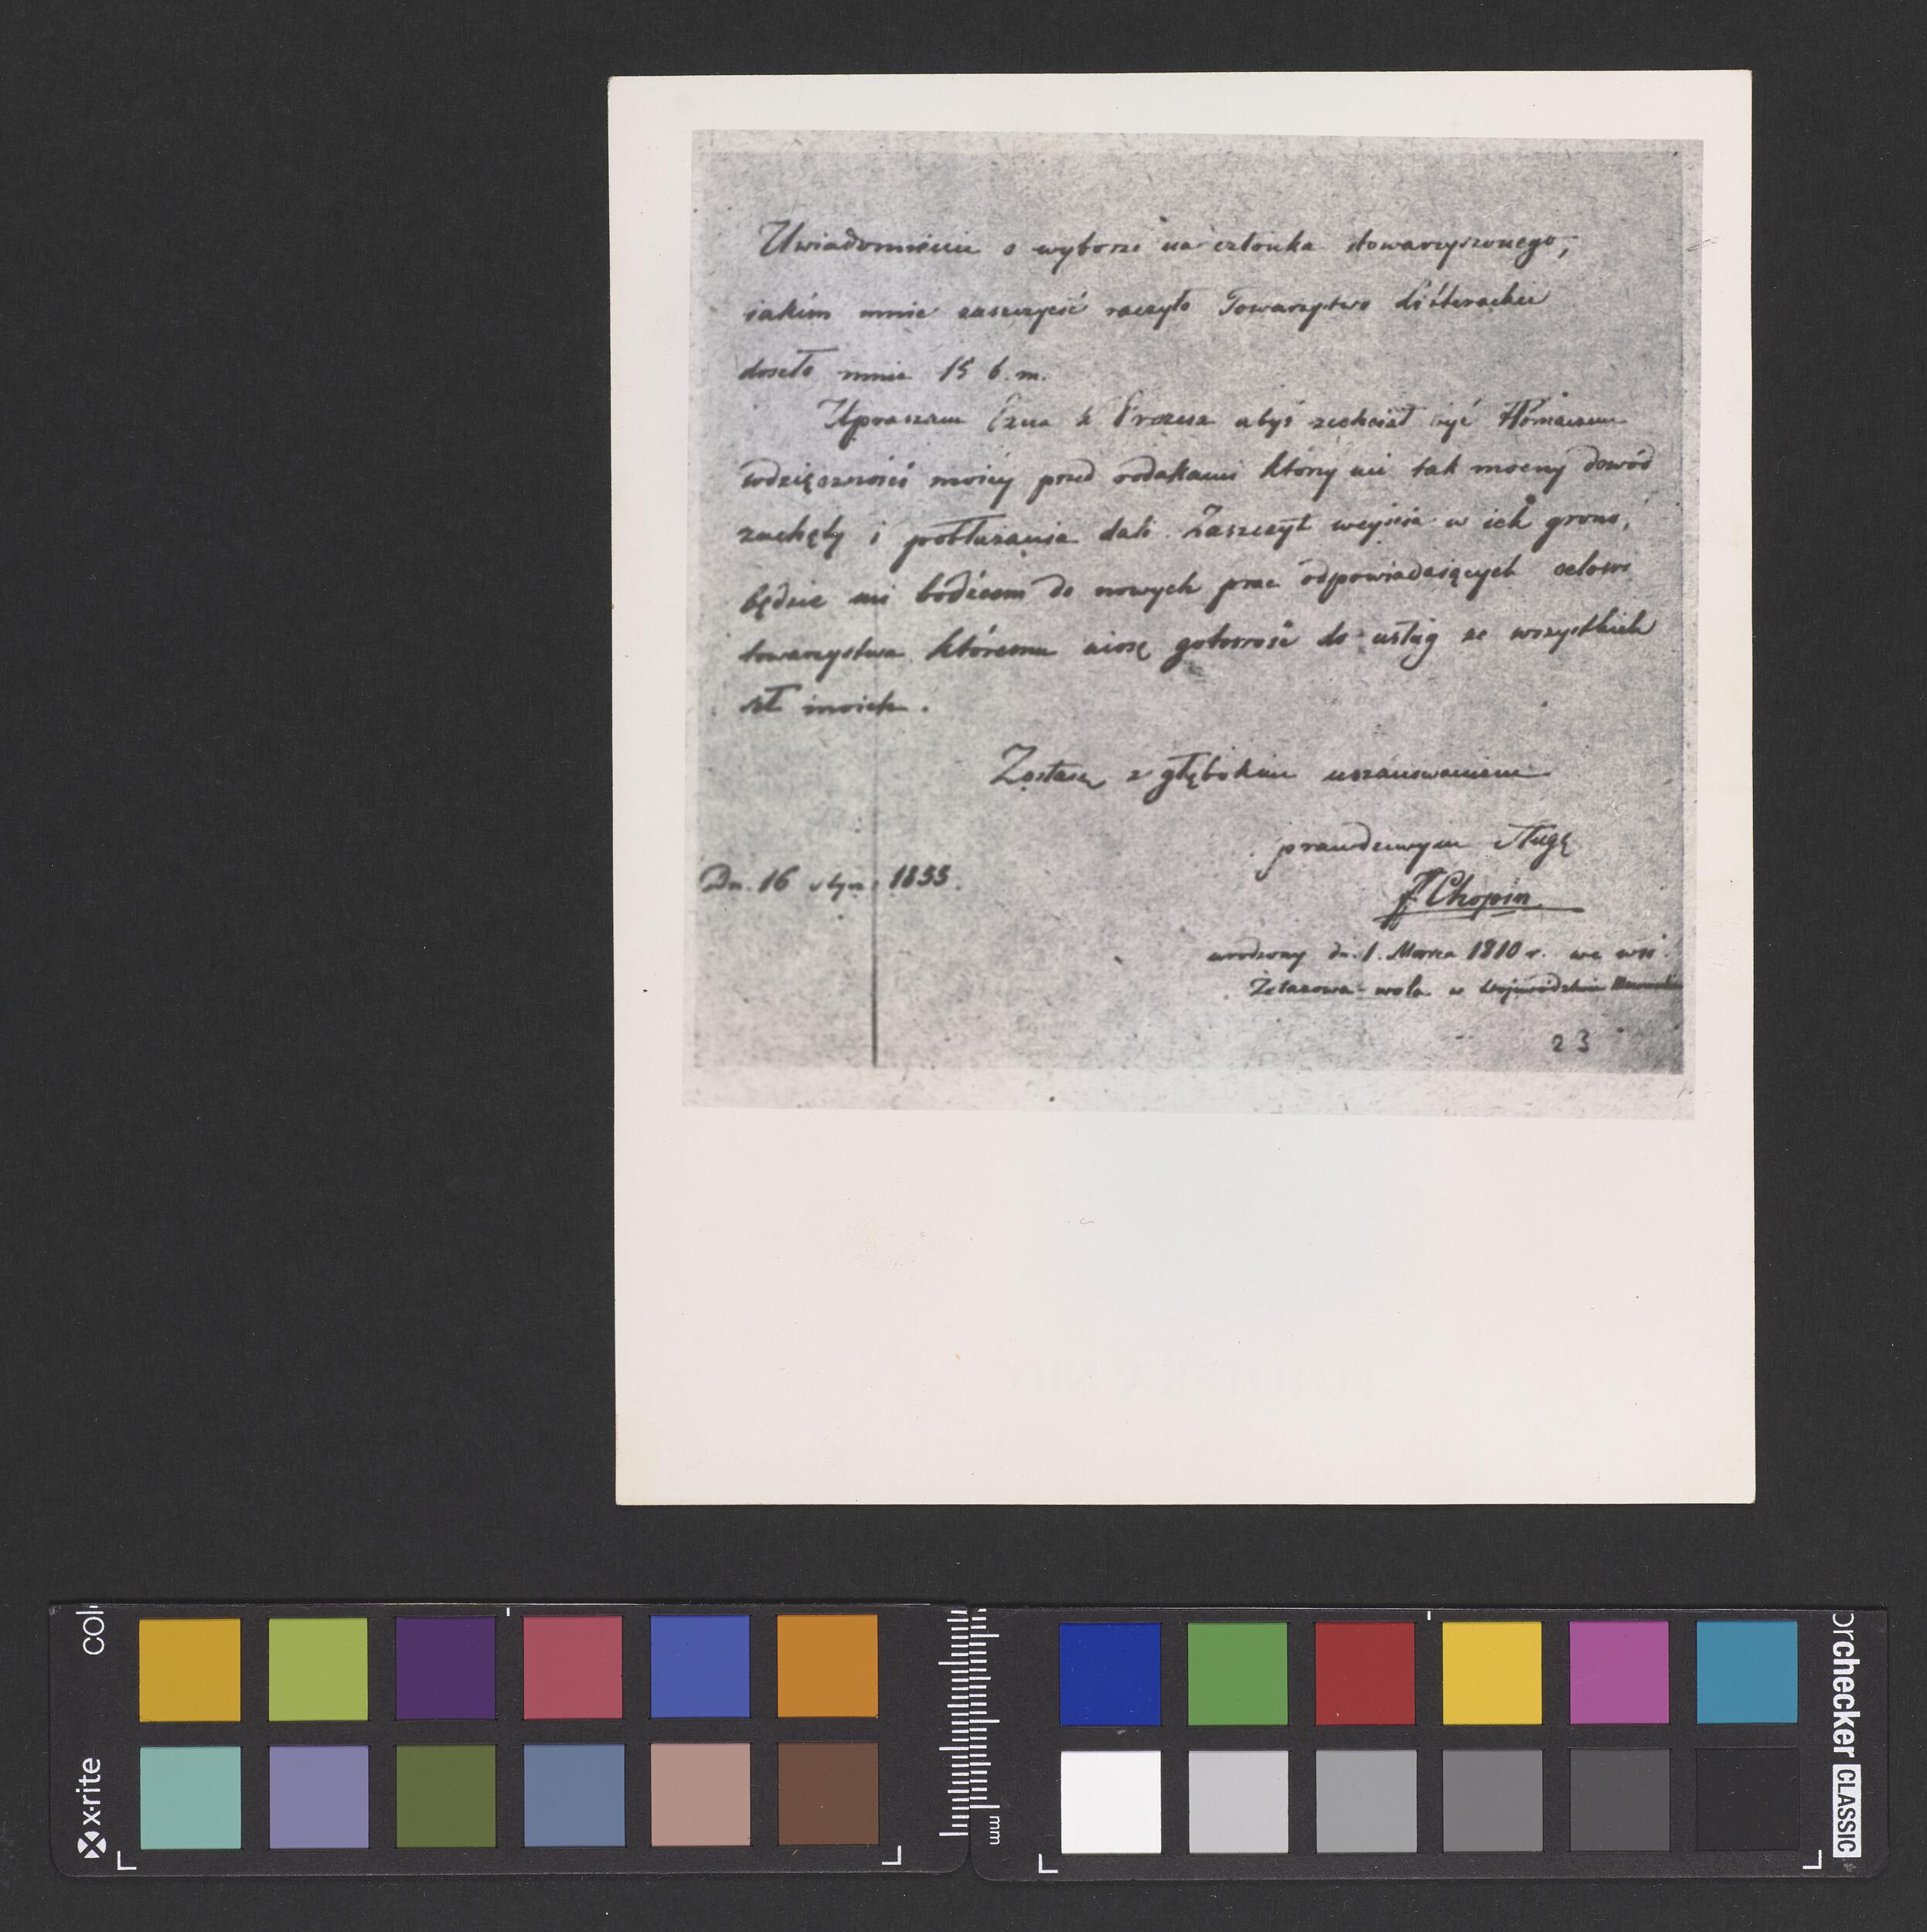 Uwiadomienie o wyborze na członka stowarzyszonego,
iakim mnie zaszczycić raczyło Towarzystwo Litterackie
doszło mnie 15 b. m.
Upraszam Prezesa abyś zechciał być tłómaczem
wdzięczności moiéy przed rodakami który mi tak mocny dowód
zachęty i pobłażania dali. Zaszczyt weyścia w ich grono,
będzie mi bodźcem do nowych prac odpowiadaiących celowi
towarzystwa któremu niosę gotowość do usług ze wszystkich
sił moich.
Zostaię z głębokim uszanowaniem
prawdziwym sługą
Dn. 16 stycz: 1833.
FF Chopin
urodzony dn. 1. Marca 1810 r. we wsi
Żelazowa-wola w Województwie
23
x-rite
col
mm
orchecker CLASSIC